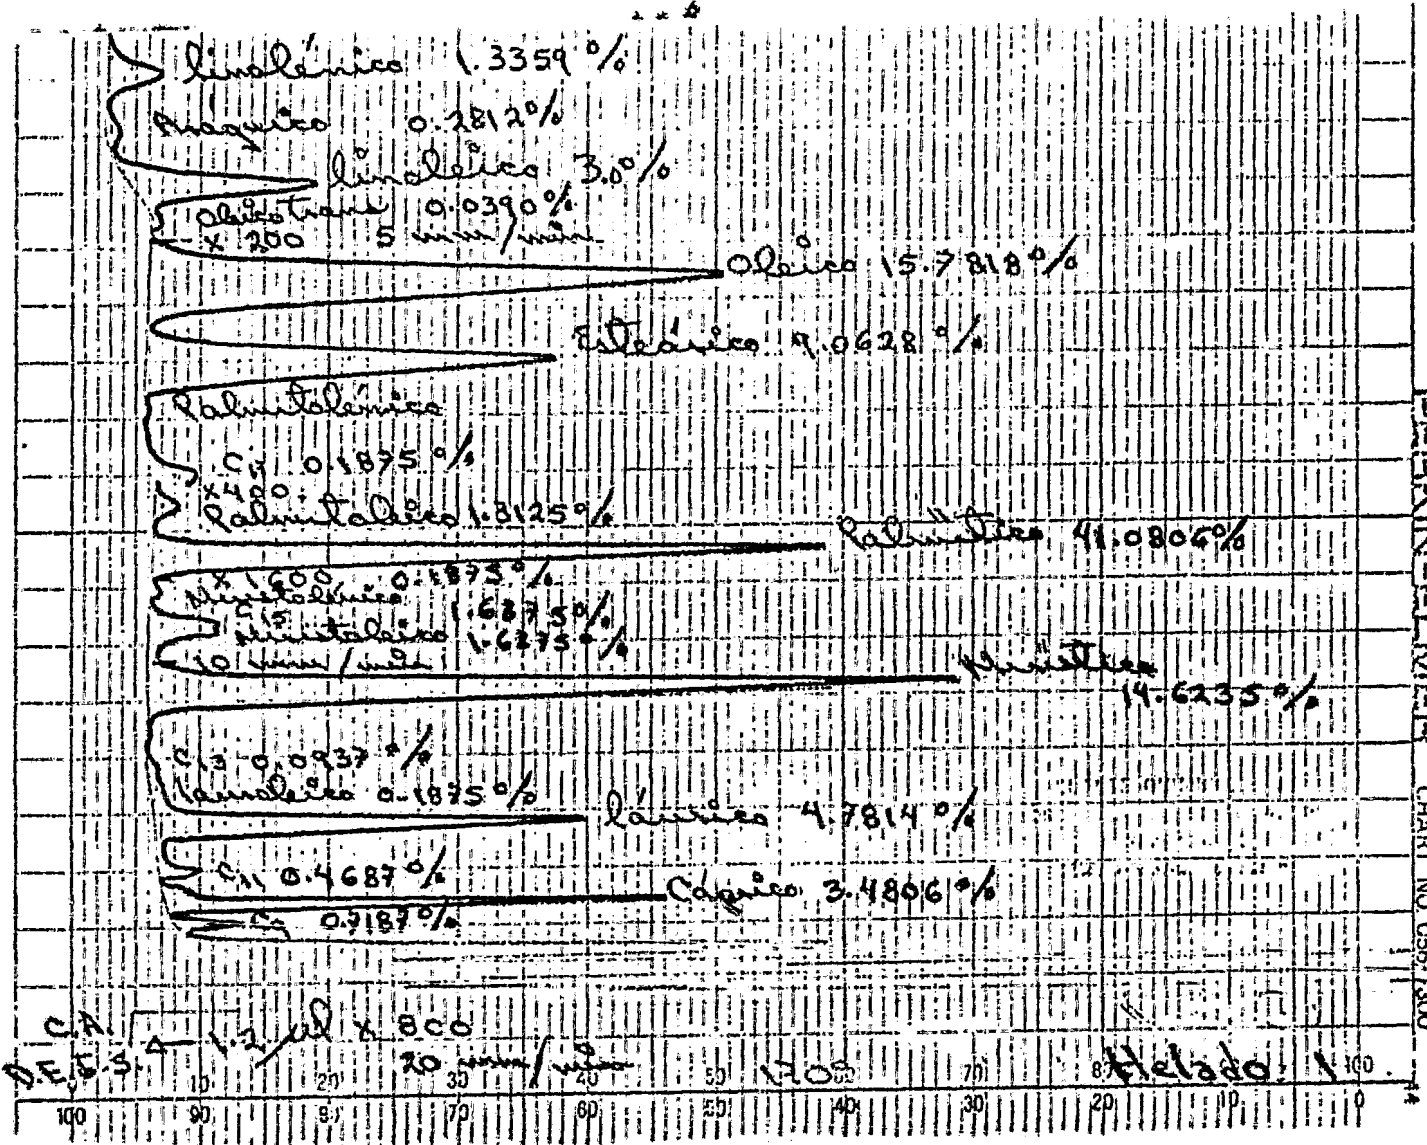 linolénico 1.3359 %
Araquico 0.2812%
linoleico 3.0%
Oleico trans 0.0390%
x 200 5 mm/min.
Oleico 15.7818%
Esteárico 9.0628 %
Palmitolénico
C17 0.1875 %
x400.
Palmitoleico 1.3125%
Palmítico 41.0806%
x 1600 0.1875%
Miristolénico
C15 1.6875%
Miristoleico 1.6275%
10 mm/min
Mirístico
14.6235%
C13 0.0937 %
Lauroleico 0.1875 %
láurico 4.7814 %
C11 0.4687%
Cáprico 3.4806 %
C9 0.7187%
C.A.
D.E.G.S. 1.2 µl x 800
20 mm/min 170°
Helado 1
10 20 30 40 50 60 70 80 100
100 90 80 70 60 50 40 30 20 10 0